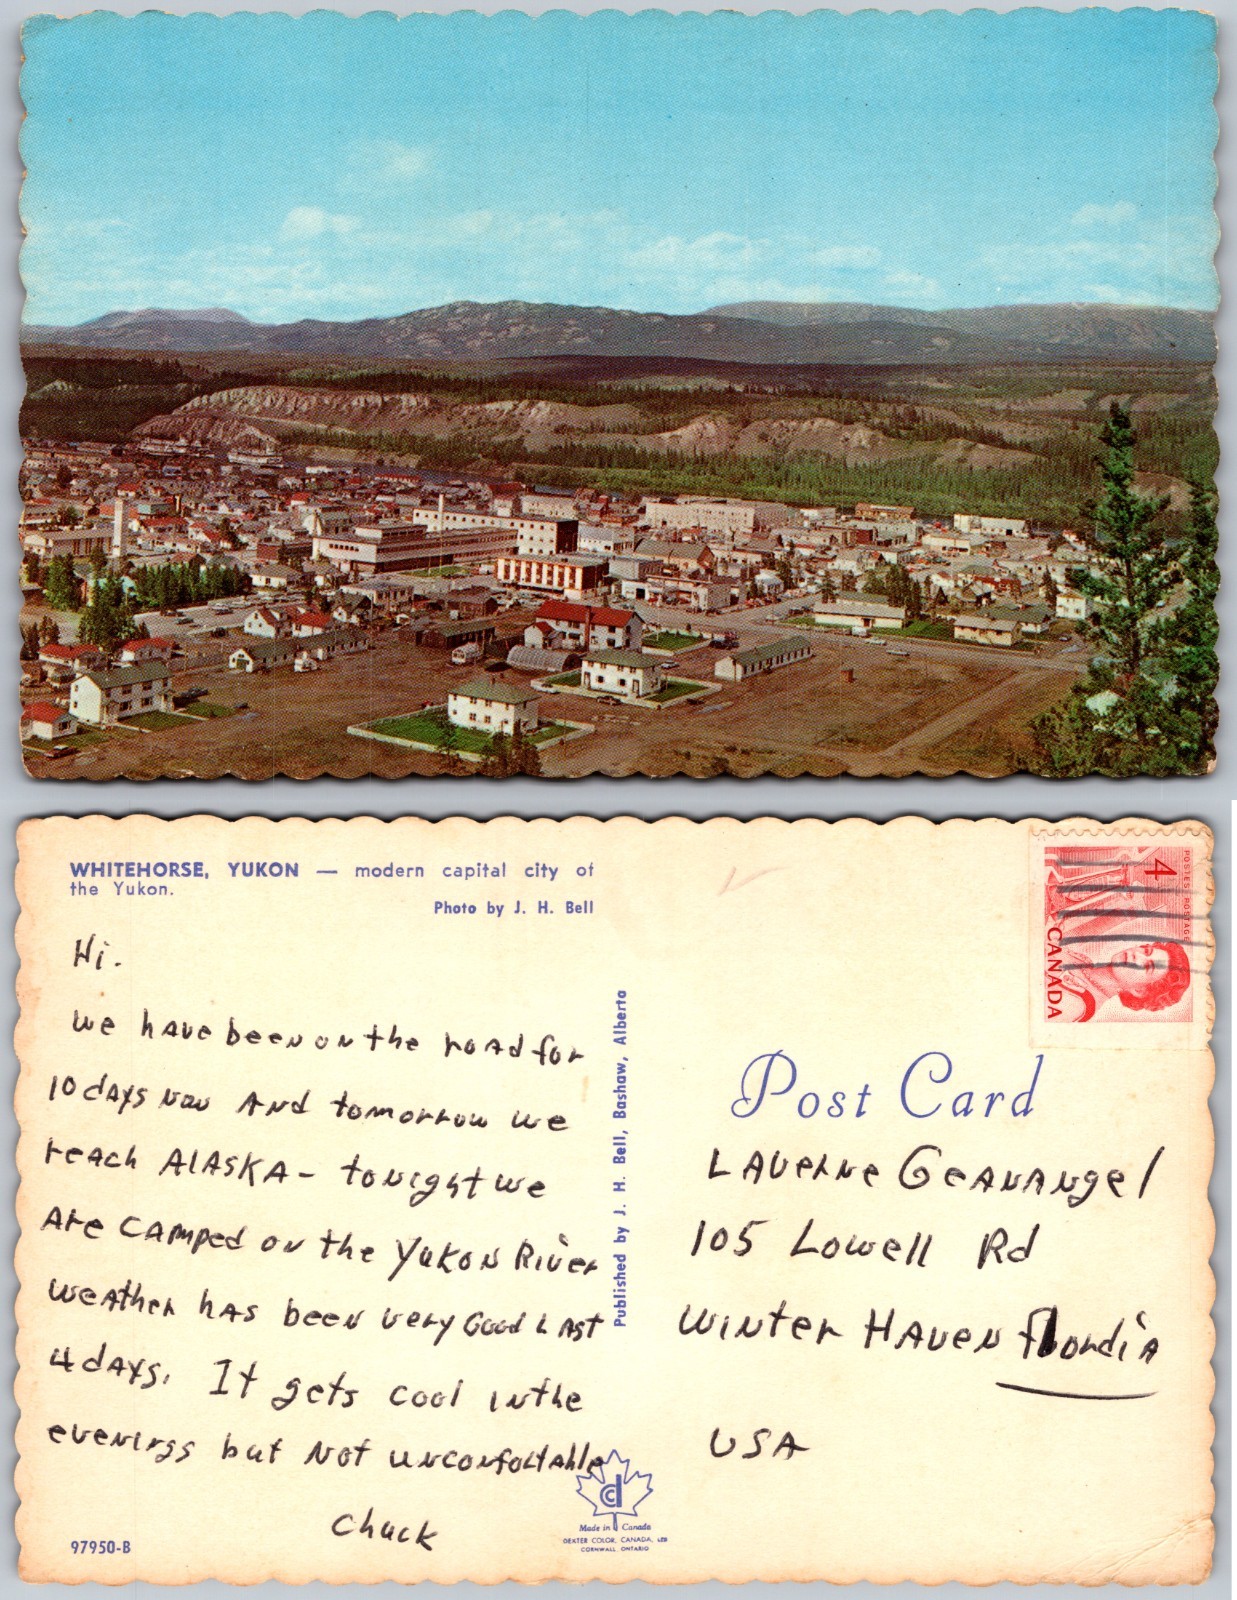 WHITEHORSE, YUKON — modern capital city of
the Yukon.
Photo by J. H. Bell
Hi.
We have been on the road for
10 days now and tomorrow we
reach ALASKA - tonight we
Are camped on the Yukon River
Weather has been very Good Last
4 days. It gets cool in the
evenings but not unconfortable
Chuck
97950-B
Published by J. H. Bell, Bashaw, Alberta
cd
Made in Canada
DEXTER COLOR, CANADA, LTD
CORNWALL, ONTARIO
POSTES POSTAGE
4
CANADA
Post Card
LAVerne Geanangel
105 Lowell Rd
Winter Haven Flordia
USA